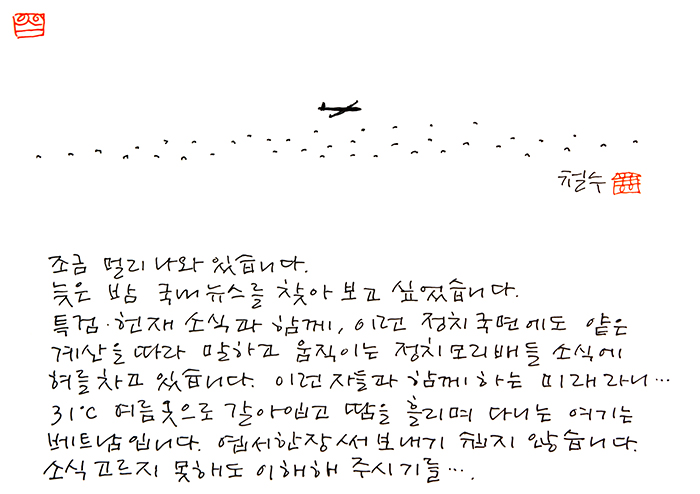 철수
조금 멀리 나와 있습니다.
늦은 밤 국내뉴스를 찾아 보고 싶었습니다.
특검·헌재 소식과 함께, 이런 정치국면에도 얕은
계산을 따라 말하고 움직이는 정치모리배들 소식에
혀를 차고 있습니다. 이런 자들과 함께 하는 미래라니…
31℃ 여름옷으로 갈아입고 땀을 흘리며 다니는 여기는
베트남입니다. 엽서한장 써 보내기 쉽지 않습니다.
소식 고르지 못해도 이해해 주시기를….